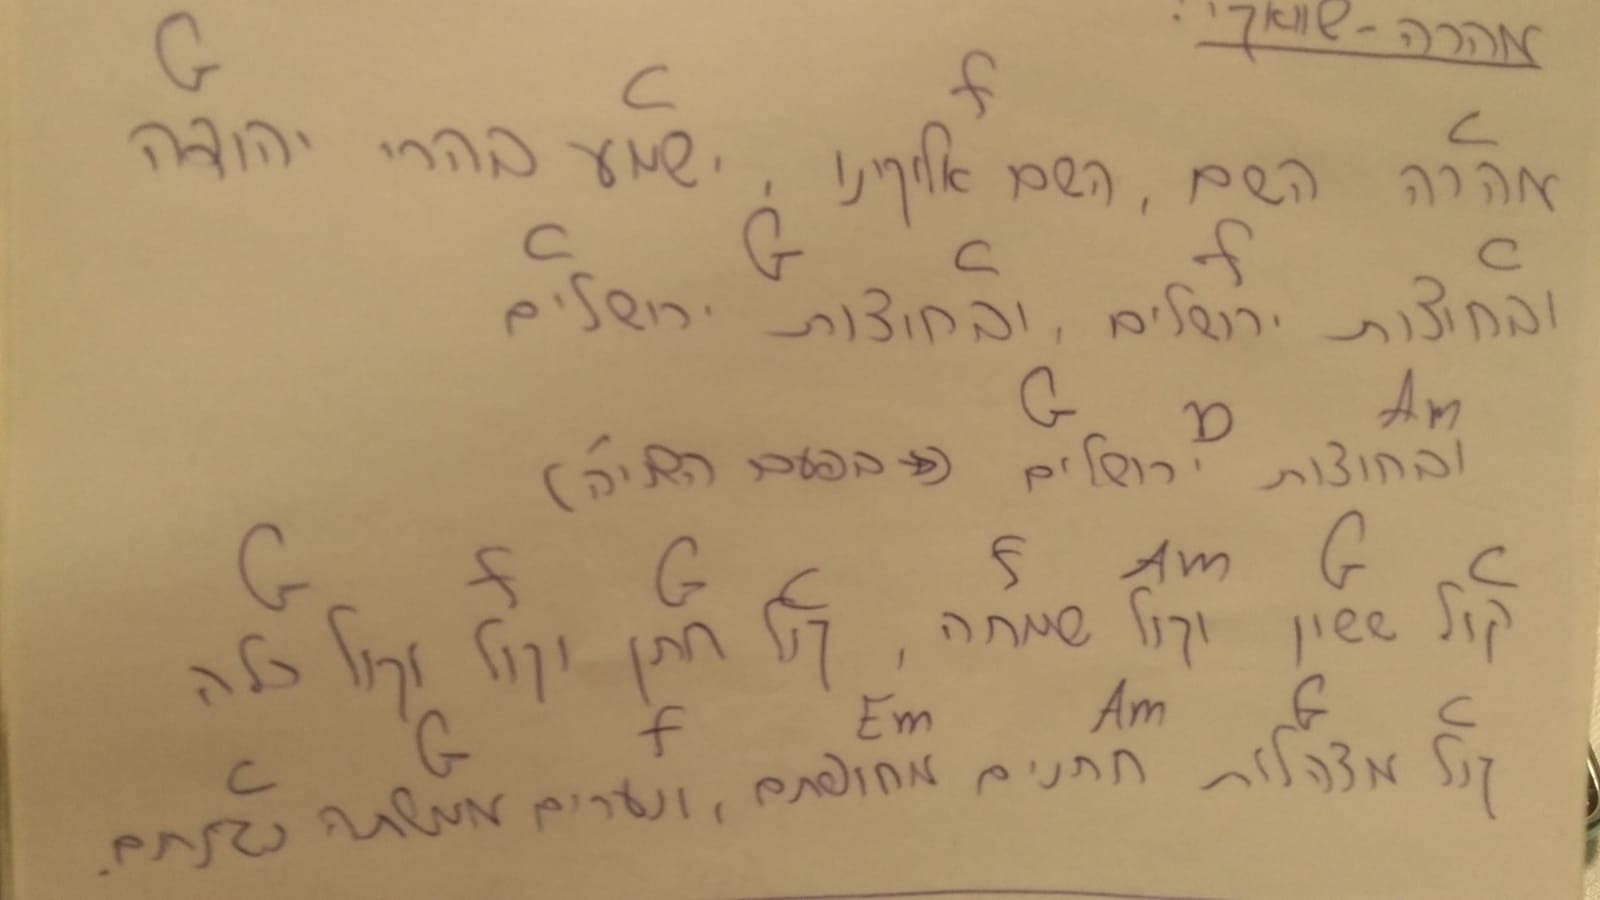 מהרה - שוואקי:
C F C G
מהרה השם, השם אלוקינו, ישמע בהרי יהודה
C F C G C
ובחוצות ירושלים, ובחוצות ירושלים
Am D G
ובחוצות ירושלים (בפעם השניה)
C G Am F C G F G
קול ששון וקול שמחה, קול חתן וקול וקול כלה
C G Am Em F G C
קול מצהלות חתנים מחופתם, ונערים ממשתה נגינתם.